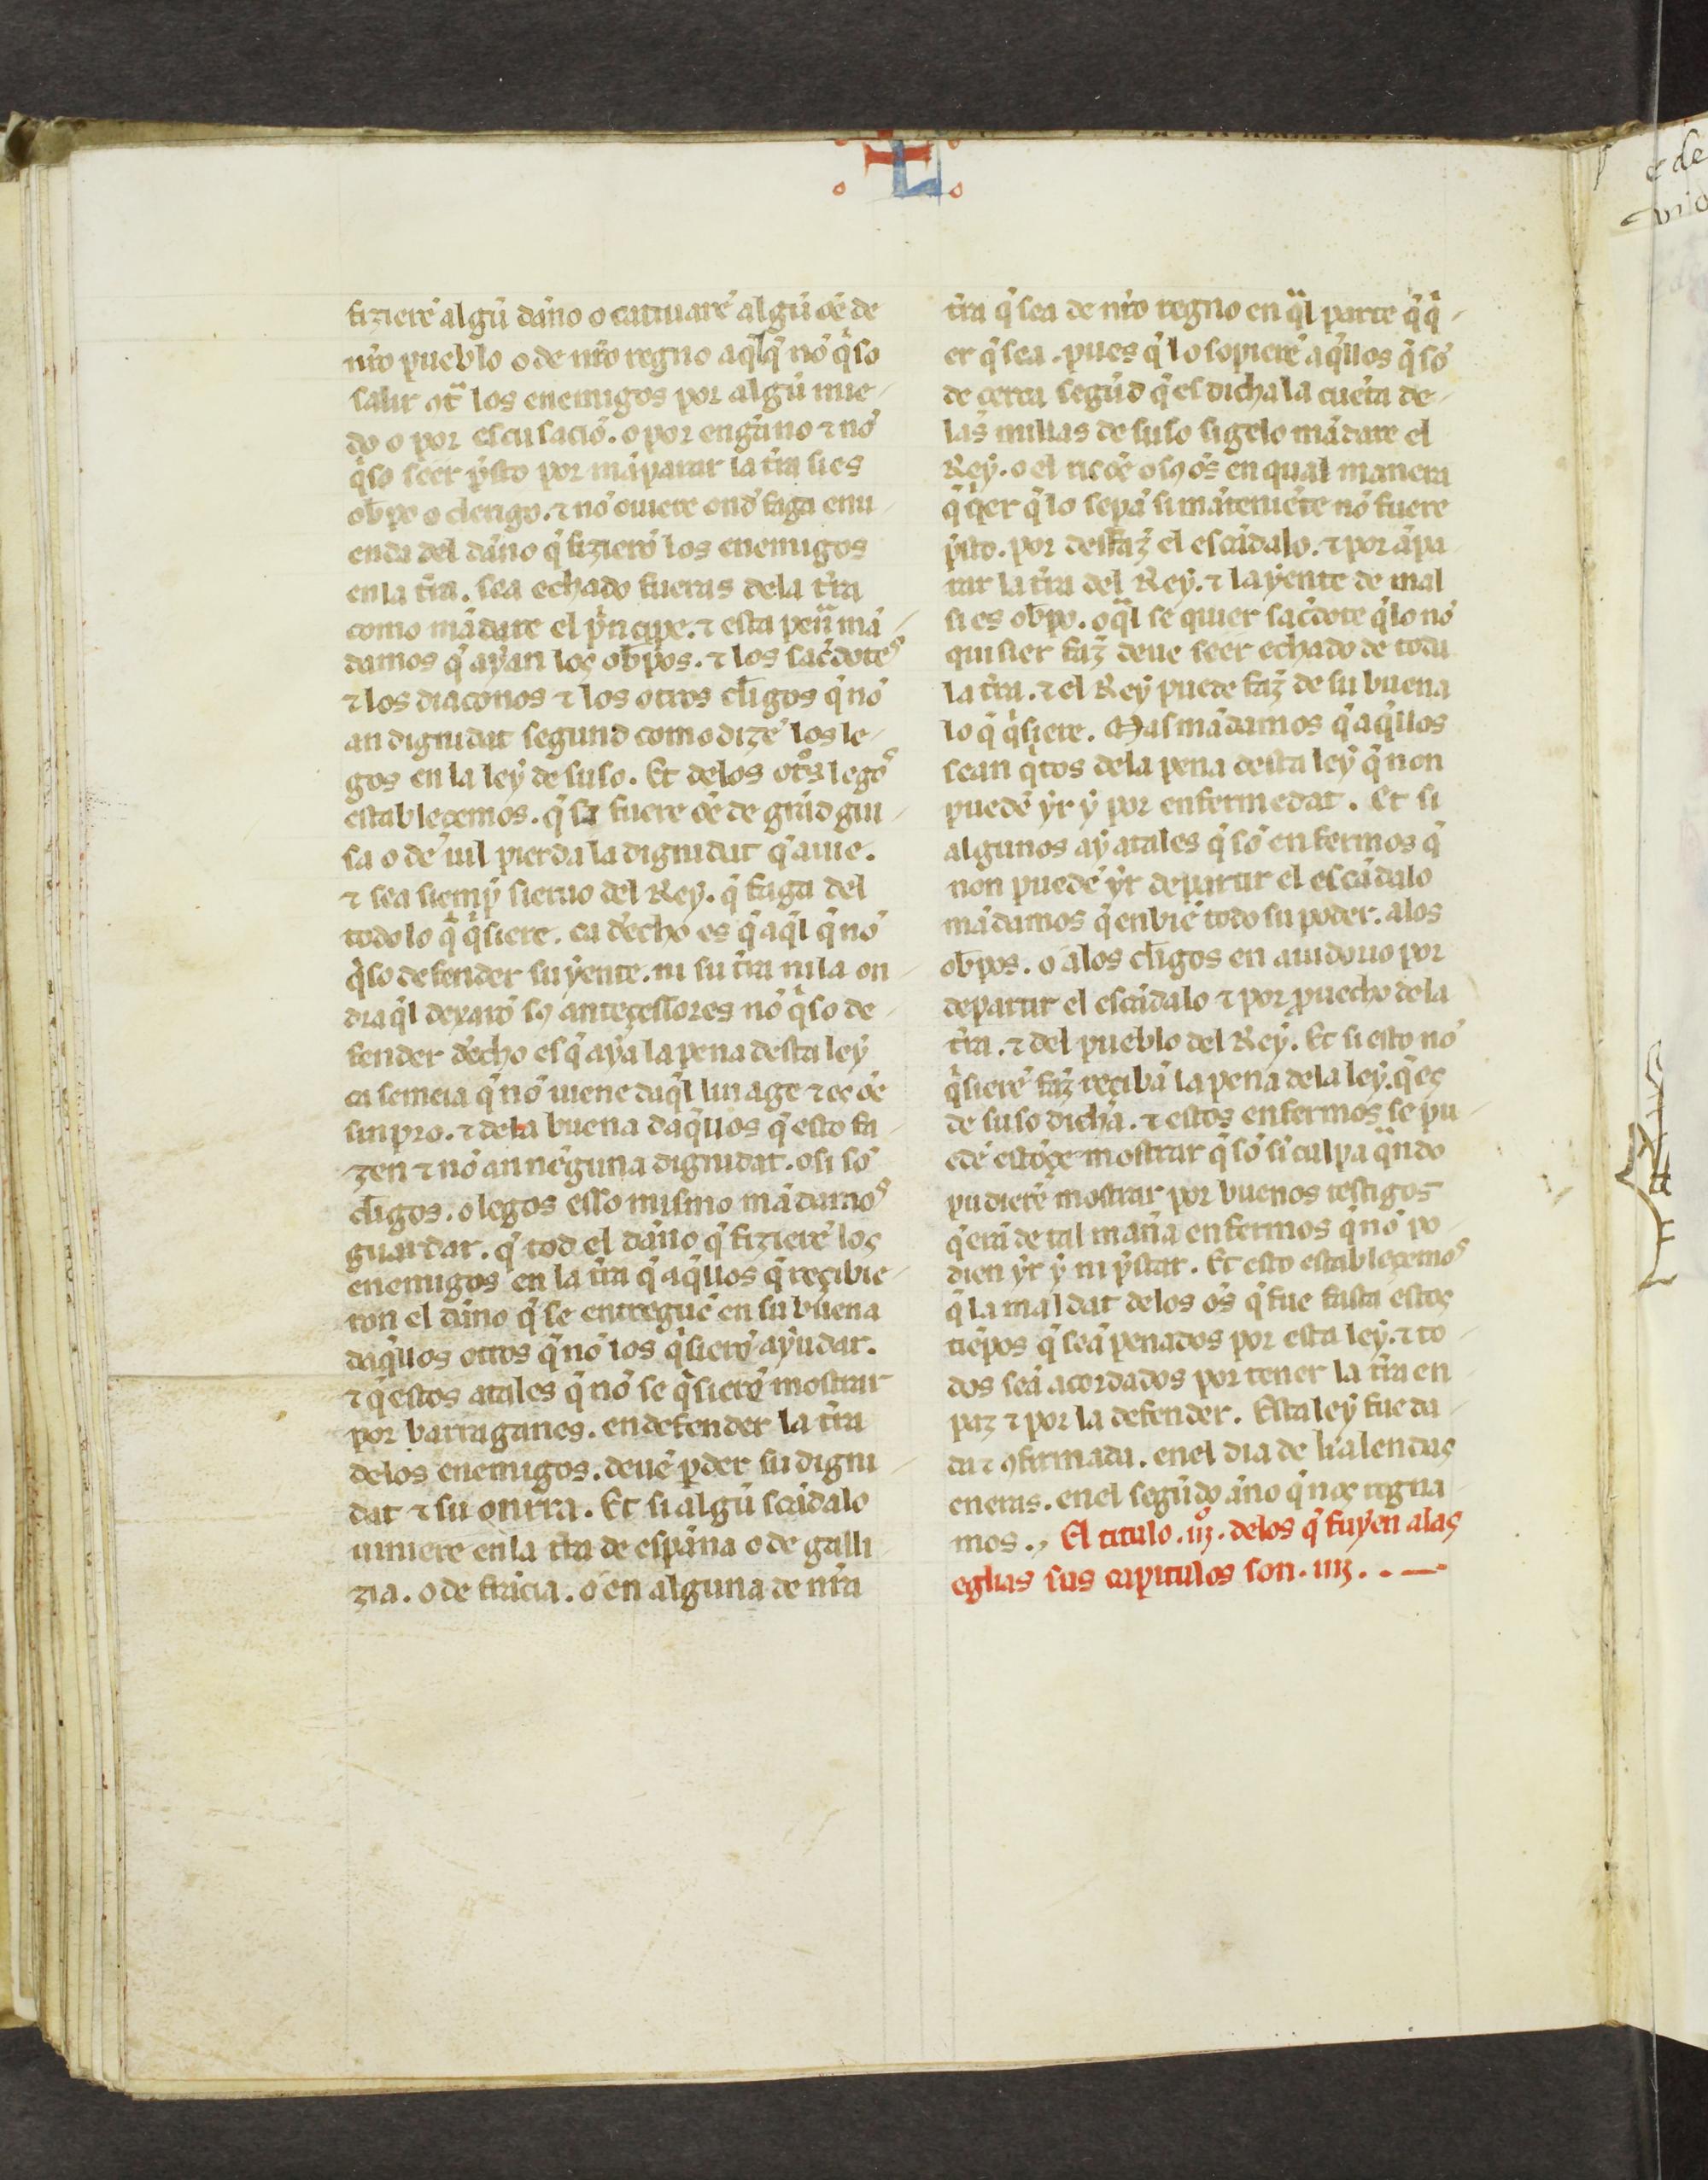 L
fizierē algū dāno o catiuarē algū oē de
nr̄o pueblo o de nr̄o regno aq̄l q̄ nō q̄so
salir ot̄ los enemigos por algū mie-
do o por escusaciō. o por engāno ⁊ nō
q̄so seer p̄sto por māparar la tr̄ra si es
ob̄po o clerigo. ⁊ nō ouiere ond faga emi-
enda del dāno q̄ fizierō los enemigos
en la tr̄ra. sea echado fueras dela tr̄ra
como mādare el p̄ncipe. ⁊ esta pena mā-
damos q̄ ayan los ob̄pos. ⁊ los sac̄dotes
⁊ los diaconos ⁊ los otros cl̄igos q̄ nō
an dignidat segund como dizē los le-
gos en la ley de suso. Et delos ot̄os legos
estableçemos. q̄ si fuere oē de grād gui-
sa o dē uil pierda la dignidat q̄ auie.
⁊ sea siemp̄ sieruo del Rey. q̄ faga del
todo lo q̄ q̄siere. ca d̄echo es q̄ aq̄l q̄ nō
q̄so defender su yente. ni su tr̄ra ni la on-
dra q̄l dexarō sꝯ anteçessores nō q̄so de-
fender d̄echo es q̄ aya la pena desta ley
ca semeia q̄ nō uiene daq̄l linage ⁊ es oē
sin pro. ⁊ dela buena daq̄llos q̄ esto fa-
zen ⁊ nō an nēguna dignidat. o si sō
cl̄igos. o legos esso mismo mādamos
guardar. q̄ tod el dāno q̄ fizierē los
enemigos en la tr̄ra q̄ aq̄llos q̄ reçibie-
ron el dāno q̄ se entreguē en su buena
daq̄llos otros q̄ nō los q̄sierō ayudar.
⁊ q̄ estos atales q̄ nō se q̄sierō mostrar
por barraganes. en defender la tr̄ra
delos enemigos. deuē p̄der su digni-
dat ⁊ su onrra. Et si algū scādalo
uiniere en la tr̄ra de espāna o de galli
zia. o de frācia. o en alguna de nr̄a
tr̄ra q̄ sea de nr̄o regno en q̄l parte q̄ q̄-
er q̄ sea. pues q̄ lo sopierē aq̄llos q̄ sō
de çerca segūd q̄ es dicha la cuēta de-
las millas de suso si gelo mādare el
Rey. o el ric oē o sꝯ oēs en qual manera
q̄ q̄er q̄ lo sepā si māteniēte nō fuere
p̄sto. por desfaz̄ el escādalo. ⁊ por āpa
rar la tr̄ra del Rey. ⁊ la yente de mal
si es ob̄po. o q̄l se quier sac̄dote q̄ lo nō
quisier faz̄ deue seer echado de toda
la tr̄ra. ⁊ el Rey puede faz̄ de su buena
lo q̄ q̄siere. Mas mādamos q̄ aq̄llos
sean q̄tos dela pena desta ley q̄ non
puedē yr y por enfermedat. Et si
algunos ay atales q̄ sō enfermos q̄
non puedē yr departir el escādalo
mādamos q̄ enbiē todo su poder. alos
ob̄pos. o alos cl̄igos en aiudorio por
departir el escādalo ⁊ por puecho dela
tr̄ra. ⁊ del pueblo del Rey. Et si esto nō
q̄sierē faz̄ reçibā la pena dela ley. q̄ es
de suso dicha. ⁊ estos enfermos se pu-
edē estōçe mostrar q̄ sō sī culpa q̄ndo
pudierē mostrar por buenos testigos
q̄ erā de tal man̄a enfermos q̄ nō po-
dien yr y ni p̄star. Et esto estableçemos
q̄ la maldat delos oēs q̄ fue fasta estos
tiēpos q̄ seā penados por esta ley. ⁊ to-
dos seā acordados por tener la tr̄ra en
paz ⁊ por la defender. Esta ley fue da-
da ⁊ ꝯfirmada. en el dia de kalendas
eneras. en el segūdo āno q̄ nos regna-
mos. El titulo .iijº. delos q̄ fuyen alas
eglias sus capitulos son .iiij.